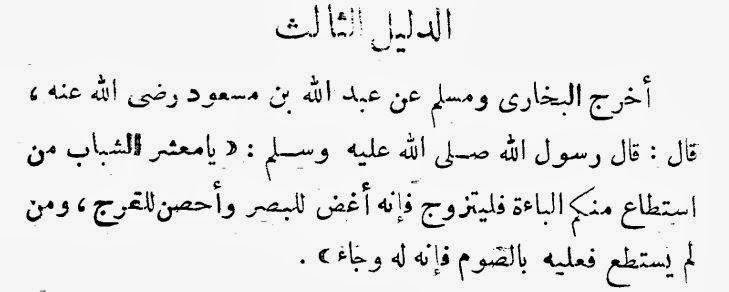 الدليل الثالث
أخرج البخارى ومسلم عن عبد الله بن مسعود رضى الله عنه ،
قال : قال رسول الله صلى الله عليه وسلم : « يامعشر الشباب من
استطاع منكم الباءة فليتزوج فإنه أغض للبصر وأحصن للفرج ، ومن
لم يستطع فعليه بالصوم فإنه له وجاء » .